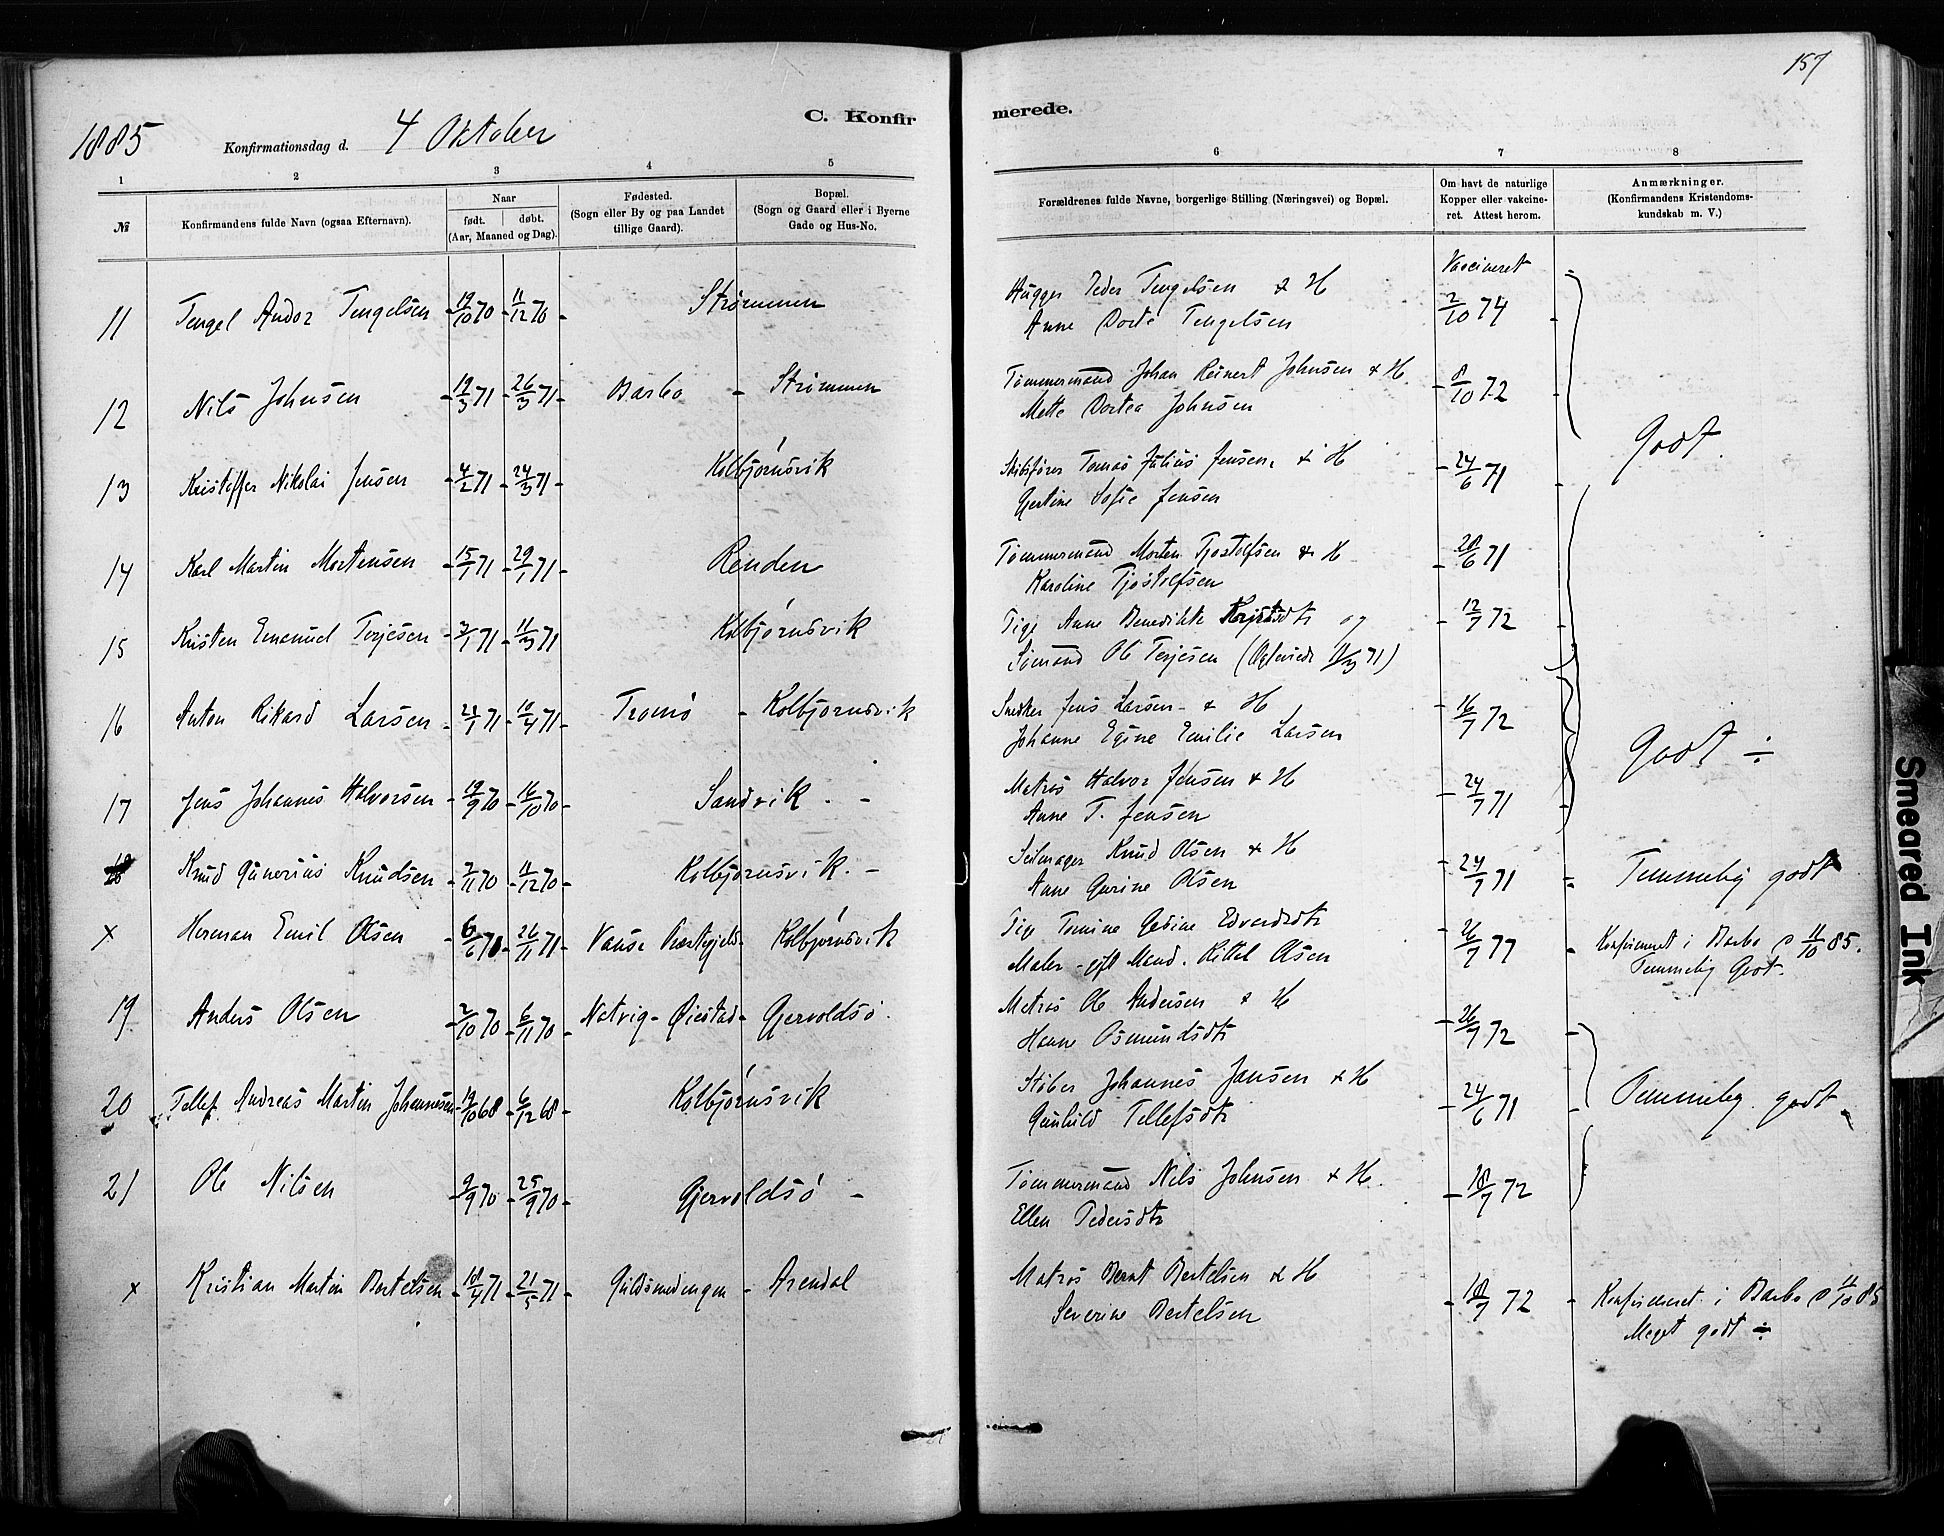 157
1885 Konfirmationsdag d. 4 Oktober C. Konfir merede.
1 2 3 4 5 6 7 8
№ Konfirmandens fulde Navn (ogsaa Efternavn). Naar født. døbt. (Aar, Maaned og Dag). Fødested. (Sogn eller By og paa Landet tillige Gaard). Bopæl. (Sogn og Gaard eller i Byerne Gade og Hus-No. Forældrenes fulde Navne, borgerlige Stilling (Næringsvei) og Bopæl. Om havt de naturlige Kopper eller vakcineret. Attest herom. Anmærkninger. (Konfirmandens Kristendomskundskab m. V.)
Vaccineret
11 Tengel Andor Tengelsen 19/10 70 11/12 70 Strømmen Hugger Peder Tengelsen & H 2/10 74
Anne Dorte Tengelsen
12 Nils Johnsen 19/3 71 26/3 71 Barbo - Strømmen Tømmermand Johan Reinert Johnsen & H. 8/10 72
Mette Dortea Johnsen
Godt.
13 Kristoffer Nikolai Jensen 4/2 71 24/3 71 Kolbjørnsvik Skibsfører Tomas Julius Jensen & H 24/6 71
Gjertine Sofie Jensen
14 Karl Martin Mortensen 15/1 71 29/1 71 Renden Tømmermand Morten Tjostolfsen & H 28/6 71
Karoline Tjøstolfsen
15 Kristen Emanuel Terjesen 3/1 71 11/3 71 Kolbjørnsvik Pige Anne Benedikte og 12/7 72
Sømand Ole Terjesen
16 Anton Rikard Larsen 21/1 71 10/4 71 Tromø - Kolbjørnsvik Snedker Jens Larsen & H 16/7 72
Johanne Egine Emilie Larsen
Godt ÷
17 Jens Johannes Halvorsen 19/9 70 16/10 70 Sandvik - Matros Halvor Jensen & H 24/7 71
Anne T. Jensen
18 Knud Gunerius Knudsen 7/11 70 11/12 70 Kolbjørnsvik. - Seilmager Knud Olsen & H 24/7 71 Temmelig godt
Anne Gurine Olsen
x Herman Emil Olsen 6/6 71 26/11 71 Vanse Præstegjeld - Kolbjørnsvik Pig Tomine Gedine Edvardsdtr 26/7 77 Konfirmeret i Barbo d 11/10 85.
Maler - gift Mand. Kittel Olsen Temmelig Godt.
19 Anders Olsen 2/10 70 6/11 70 Natvig - Øiestad - Gjervoldsø. Matros Ole Andersen & H 26/7 72
Hanne Osmundsdtr
20 Tellef Andreas Martin Johannesen 19/10 68 6/12 68 Kolbjørnsvik Støber Johannes Jansen & H 24/6 71 Temmelig godt
Gunhild Tellefsdtr
21 Ole Nilsen 9/9 70 25/9 70 Gjervoldsø - Tømmermand Nils Johnsen & H. 18/7 72
Ellen Pedersdtr
x Kristian Martin Bertelsen 18/4 71 21/5 71 Guldsmedengen - Arendal Matros Bernt Bertelsen & H 18/7 72 Konfirmeret i Barbo d 11/10 85
Severine Bertelsen Meget godt ÷
Smeared Ink